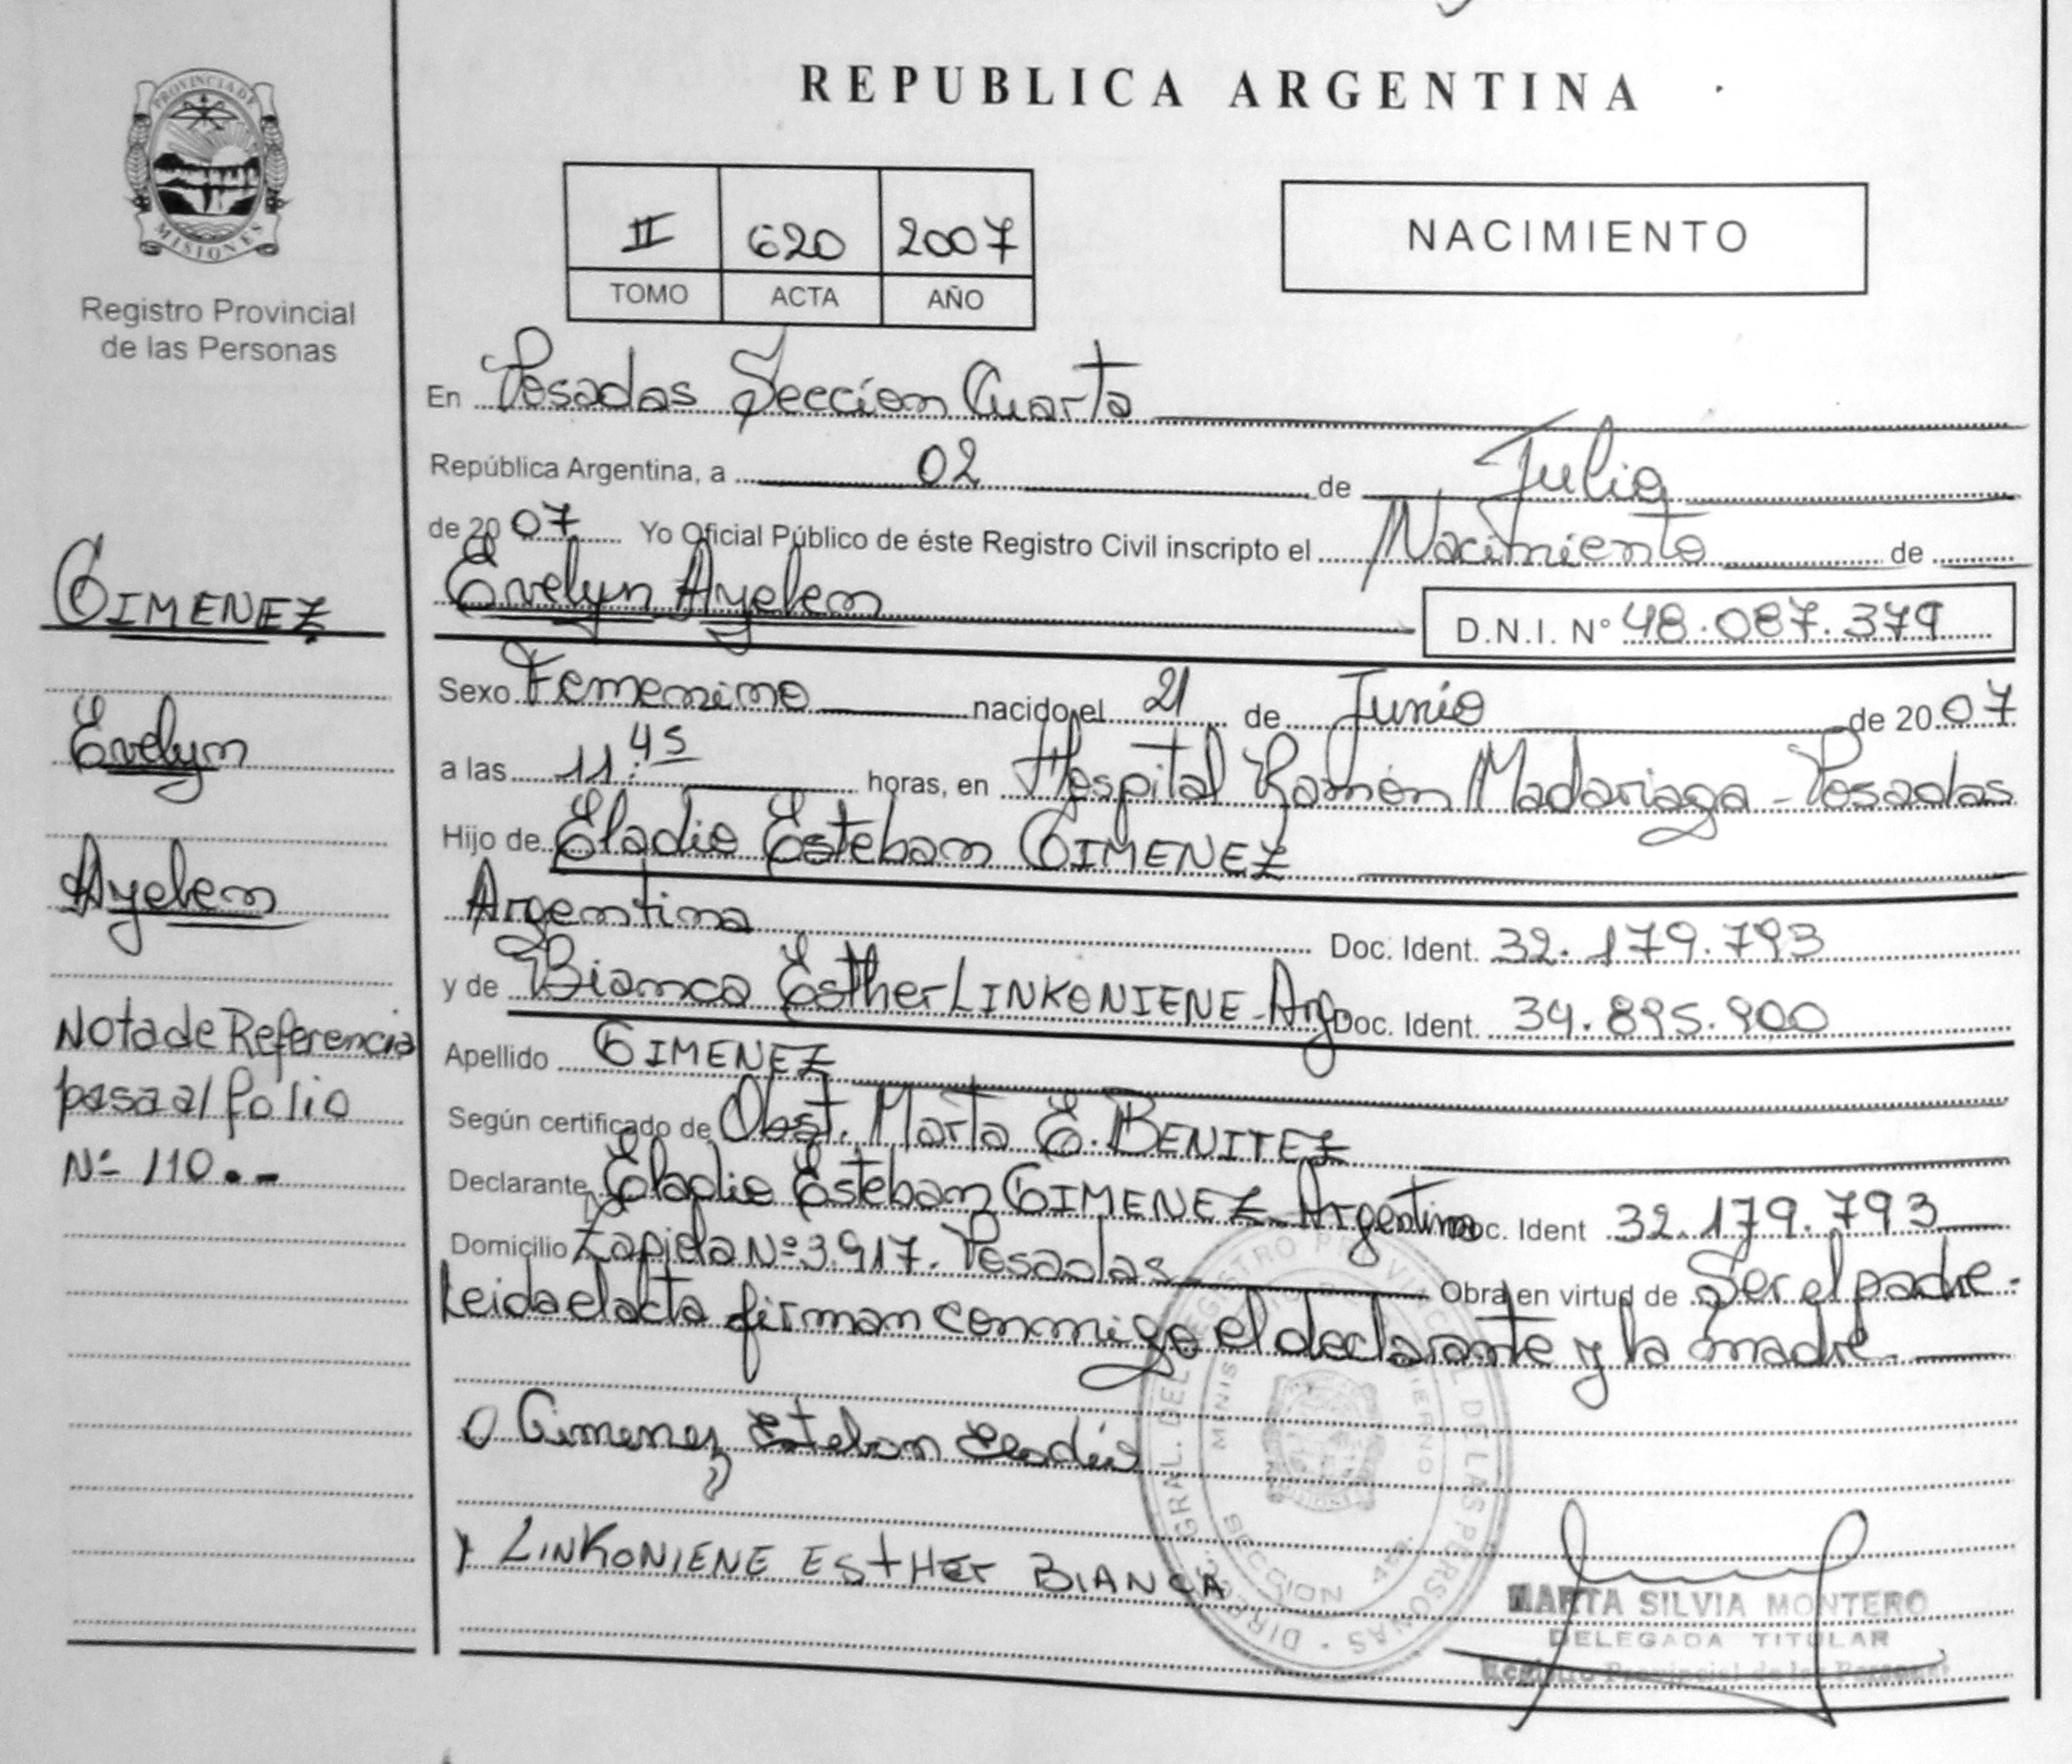 REPUBLICA ARGENTINA
PROVINCIA DE
MISIONES
Registro Provincial
de las Personas
II 620 2007
TOMO ACTA AÑO
NACIMIENTO
En Posadas Sección Cuarta
República Argentina, a 02 de Julio
de 2007 Yo Oficial Público de éste Registro Civil inscripto el Nacimiento de
Evelyn Ayelen
D.N.I. N° 48.087.379
Sexo Femenino nacido el 21 de Junio de 2007
a las 11:45 horas, en Hospital Ramón Madariaga - Posadas
Hijo de Eladio Esteban GIMENEZ
Argentina Doc. Ident. 32.179.793
y de Bianca Esther LINKONIENE - Arg. Doc. Ident. 34.895.900
Apellido GIMENEZ
Según certificado de Obst. Marta E. BENITEZ
Declarante Eladio Esteban GIMENEZ - Argentina Doc. Ident 32.179.793
Domicilio Zapiola Nº 3.917. Posadas Obra en virtud de Ser el padre.
Leida el acta firman conmigo el declarante y la madre.
Gimenez Esteban Eladio
LINKONIENE ESTHER BIANCA
GIMENEZ
Evelyn
Ayelen
Nota de Referencia
pasa al folio
Nº 110.-
DIREC. GRAL. DEL REGISTRO PROVINCIAL DE LAS PERSONAS
SECCION 4ta.
MARTA SILVIA MONTERO
DELEGADA TITULAR
Registro Provincial de las Personas